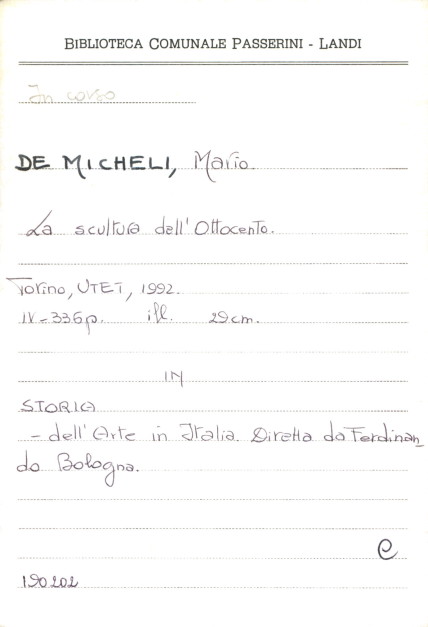 BIBLIOTECA COMUNALE PASSERINI - LANDI
In corso
DE MICHELI, Mario
La scultura dell'Ottocento.
Torino, UTET, 1992.
IV-336p. ill. 29cm.
IN
STORIA
- dell'Arte in Italia. Diretta da Ferdinan
do Bologna.
e
190202